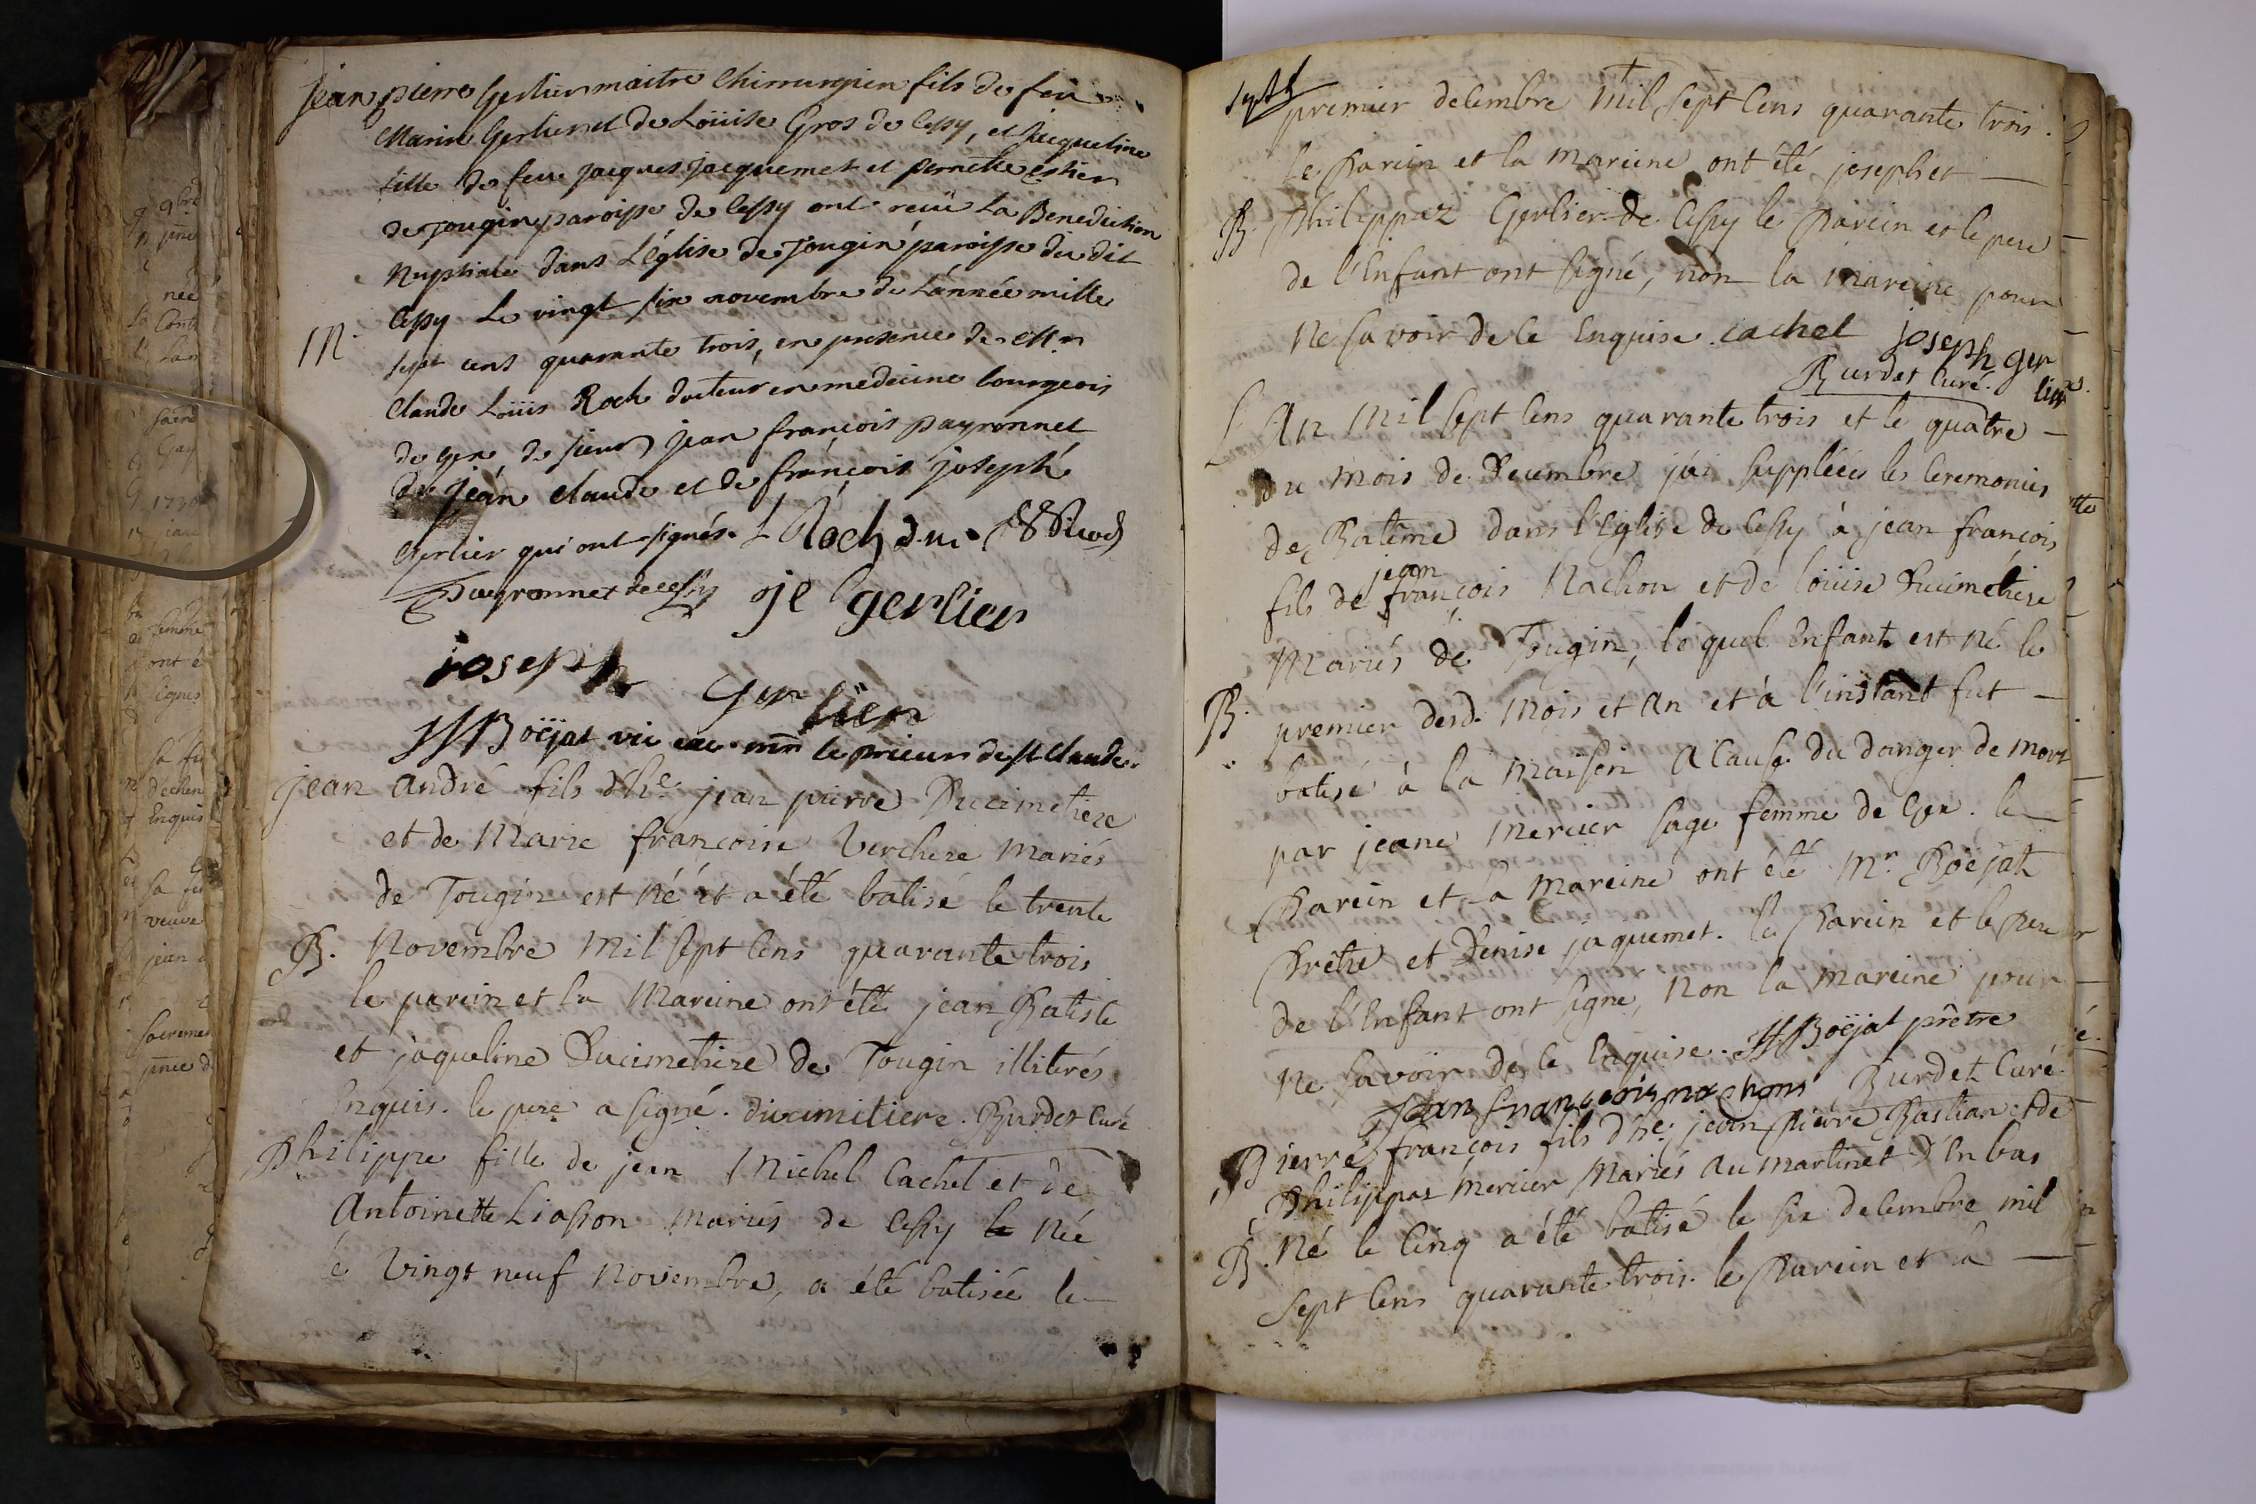 jean pierre Gerlier maitre Chirurgien fils de feu
Marin Gerlier et de Loüise Gros de Cessy, et jacqueline
fille de feu jacques jacquemet et pernette
de Tougin paroisse de Cessy ont reçu La Benediction
Nuptiale dans L'église de Tougin paroisse du dit
Cessy Le vingt six novembre de L'année mille
M.
sept cens quarante trois, en presence de Mr
Claude Loüis Roch docteur en medecine bourgeois
de Gex de sieur jean françois payronnet
de jean claude et de françois joseph
Gerlier qui ont signés. Roch d.m.
Payronnet de Cessy je gerlier
joseph
Ger lier
Boëjat vic le prieur de st Claude.
jean André fils d'he. jean pierre Ducimetiere
et de Marie françoise Verchere mariés
de Tougin est Né et a été batisé le trente
B. Novembre Mil sept cens quarante trois
le parein et la Mareine ont été jean Batiste
et jaqueline Ducimetiere de Tougin illiterés
Enquis. le pere a signé. ducimitiere. Burdet Curé
Philippe fille de jean Michel Cachet et de
Antoinette Liasson mariés de Cessy Née
le Vingt neuf Novembre, a été batisée le
premier decembre Mil sept cens quarante trois.
le Parein et la Mareine ont été joseph et
B. Philippaz Gerlier de Cessy le Parein et le pere
de l'Enfant ont signé, non la Mareine pour
Ne savoir de ce Enquise. cachet joseph ger
lier
Burdet Curé.
L'An Mil sept cens quarante trois et le quatre
du mois de Decembre j'ai suppléées les Ceremonies
de Batême dans l'Eglise de Cessy à jean françois
jean
fils de françois Nachon et de loüise Ducimetiere
Mariés de Tougin, lequel Enfant est Né le
B. premier desd. Mois et An et à l'instant fut
batisé à la Maison A Cause du danger de Mort
par jeane Mercier sage femme de Gex. le
Parein et la Mareine ont été Mr. Boëjat
Prêtre et Denise jaquemet. le Parein et le Pere
de l'Enfant ont signe, Non la Mareine pour
Ne savoir de ce Enquise. Boëjat prêtre
Jean francois nachon Burdet Curé
Pierre françois fils d'he. jean Pierre Bastian et de
Philippaz Mercier Mariés Au Martinet d'En bas
B. Né le Cinq a été batisé le six decembre mil
Sept Cens quarante trois. le Parein et la